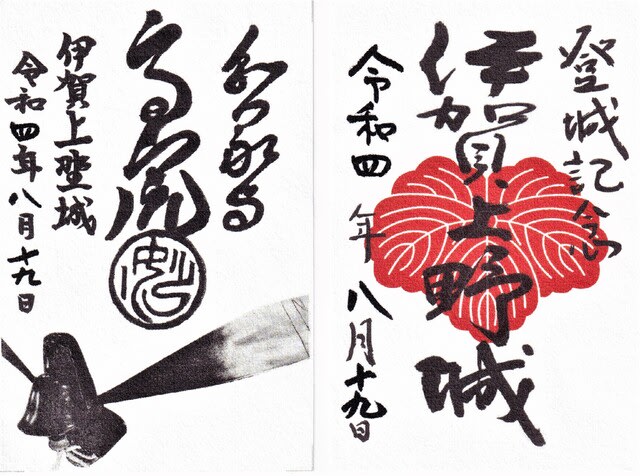 登城記念
伊賀上野城
令和四年八月十九日
高虎
伊賀上野城
令和四年八月十九日